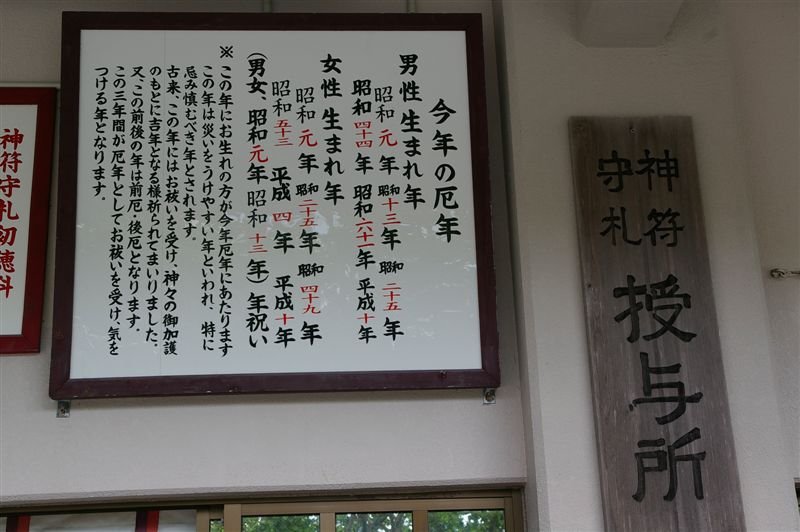 今年の厄年
男性 生まれ年
昭和 元 年 昭和 十三 年 昭和 二十五 年
昭和 四十四 年 昭和 六十一 年 平成 十 年
女性 生まれ年
昭和 元 年 昭和 二十五 年 昭和 四十九 年
昭和 五十三 平成 四 年 平成 十 年
(男女、昭和 元 年 昭和 十三 年)年祝い
※ この年にお生れの方が今年厄年にあたります
この年は災いをうけやすい年といわれ、特に
忌み慎むべき年とされます。
古来、この年にはお祓いを受け、神々の御加護
のもとに吉年となる様祈られてまいりました。
又、この前後の年は前厄・後厄となります。
この三年間が厄年としてお祓いを受け、気を
つける年となります。
神符
守札
授与所
神符守札初穂料